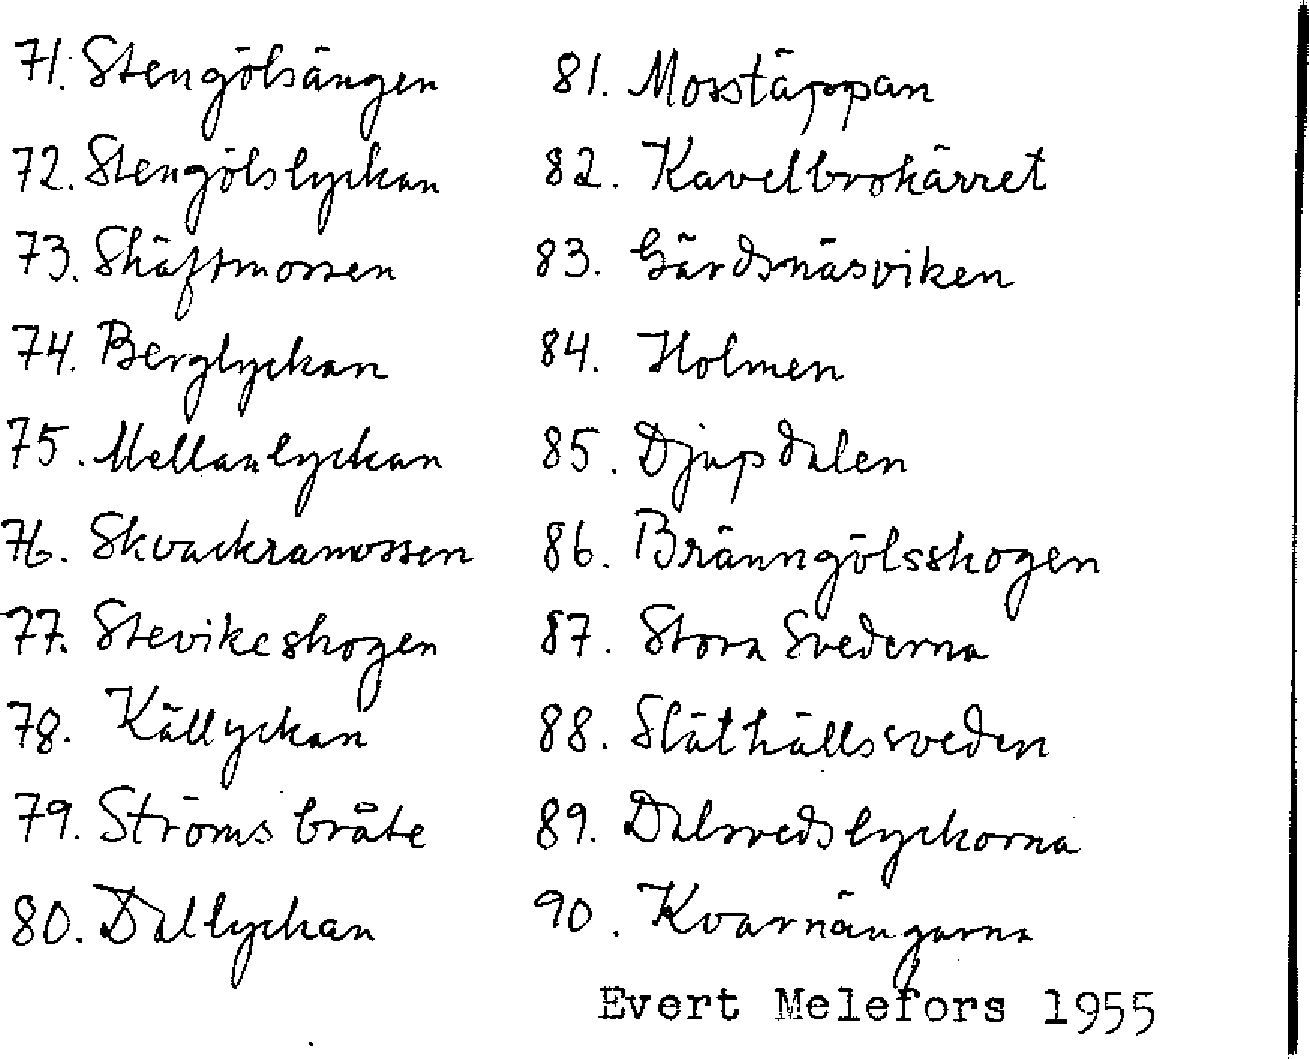 71. Stengölsängen
72. Stengölslyckan
73. Skäftmossen
74. Berglyckan
75. Mellanlyckan
76. Skvackramossen
77. Stevikeskogen
78. Källyckan
79. Ströms bråte
80. Dallyckan
81. Mosstäppan
82. Kavelbrokärret
83. Gärdsnäsviken
84. Holmen
85. Djupdalen
86. Bränngölsskogen
87. Stora Svederna
88. Släthällssveden
89. Dalsvedslyckorna
90. Kvarnängarna
Evert Melefors 1955